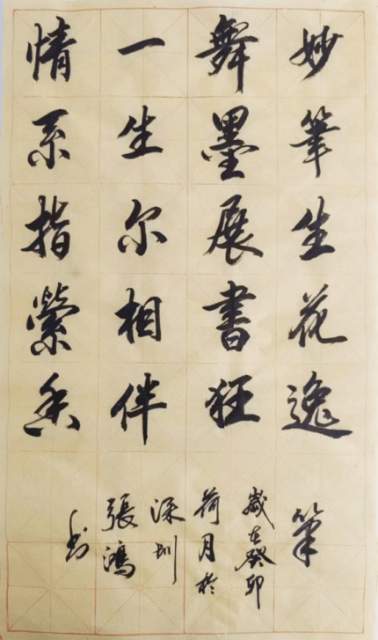 妙筆生花逸
舞墨展書狂
一生尔相伴
情系指縈香
筆
歲在癸卯
荷月於
深圳
張鴻
书